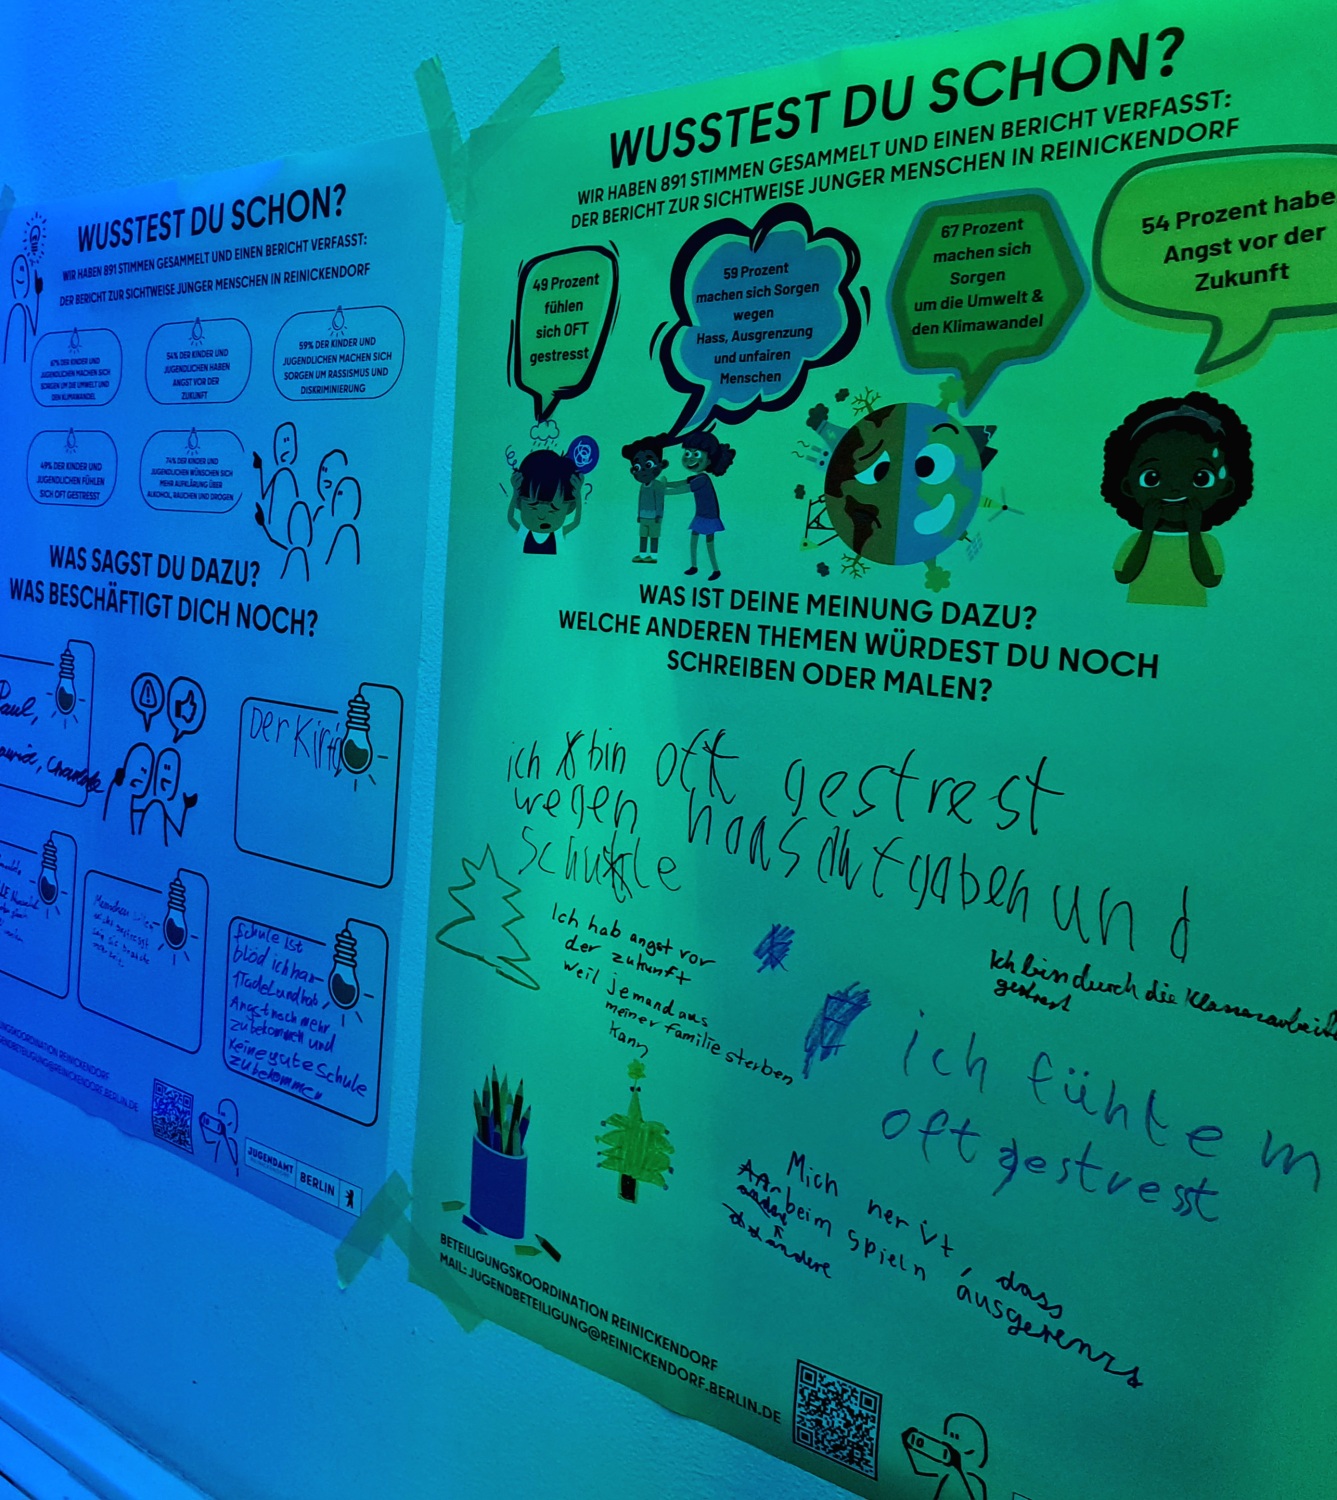 WUSSTEST DU SCHON?
WIR HABEN 891 STIMMEN GESAMMELT UND EINEN BERICHT VERFASST:
DER BERICHT ZUR SICHTWEISE JUNGER MENSCHEN IN REINICKENDORF
67% DER KINDER UND
JUGENDLICHEN MACHEN SICH
SORGEN UM DIE UMWELT UND
DEN KLIMAWANDEL
54% DER KINDER UND
JUGENDLICHEN HABEN
ANGST VOR DER
ZUKUNFT
59% DER KINDER UND
JUGENDLICHEN MACHEN SICH
SORGEN UM RASSISMUS UND
DISKRIMINIERUNG
49% DER KINDER UND
JUGENDLICHEN FÜHLEN
SICH OFT GESTRESST
74% DER KINDER UND
JUGENDLICHEN WÜNSCHEN SICH
MEHR AUFKLÄRUNG ÜBER
ALKOHOL, RAUCHEN UND DROGEN
WAS SAGST DU DAZU?
WAS BESCHÄFTIGT DICH NOCH?
Paul,
Charlotte
Der
Menschen
Schule ist
blöd ich har
1Tadel und hab
Angst noch mehr
zu bekommen und
keine gute Schule
zu bekommen
REINICKENDORF
JUGENDAMT
BERLIN
WUSSTEST DU SCHON?
WIR HABEN 891 STIMMEN GESAMMELT UND EINEN BERICHT VERFASST:
DER BERICHT ZUR SICHTWEISE JUNGER MENSCHEN IN REINICKENDORF
49 Prozent
fühlen
sich OFT
gestresst
59 Prozent
machen sich Sorgen
wegen
Hass, Ausgrenzung
und unfairen
Menschen
67 Prozent
machen sich
Sorgen
um die Umwelt &
den Klimawandel
54 Prozent habe
Angst vor der
Zukunft
WAS IST DEINE MEINUNG DAZU?
WELCHE ANDEREN THEMEN WÜRDEST DU NOCH
SCHREIBEN ODER MALEN?
ich bin oft gestrest
wegen haasautgaben und
Schule
Ich hab angst vor
der zukunft
weil jemand aus
meiner familie sterben
kann
Ich bin durch die Klassenarbeite
gestresst
ich fühle m
oft gestresst
Mich nervt, dass
beim spieln ausgerenzs
andere
BETEILIGUNGSKOORDINATION REINICKENDORF
MAIL: JUGENDBETEILIGUNG@REINICKENDORF.BERLIN.DE